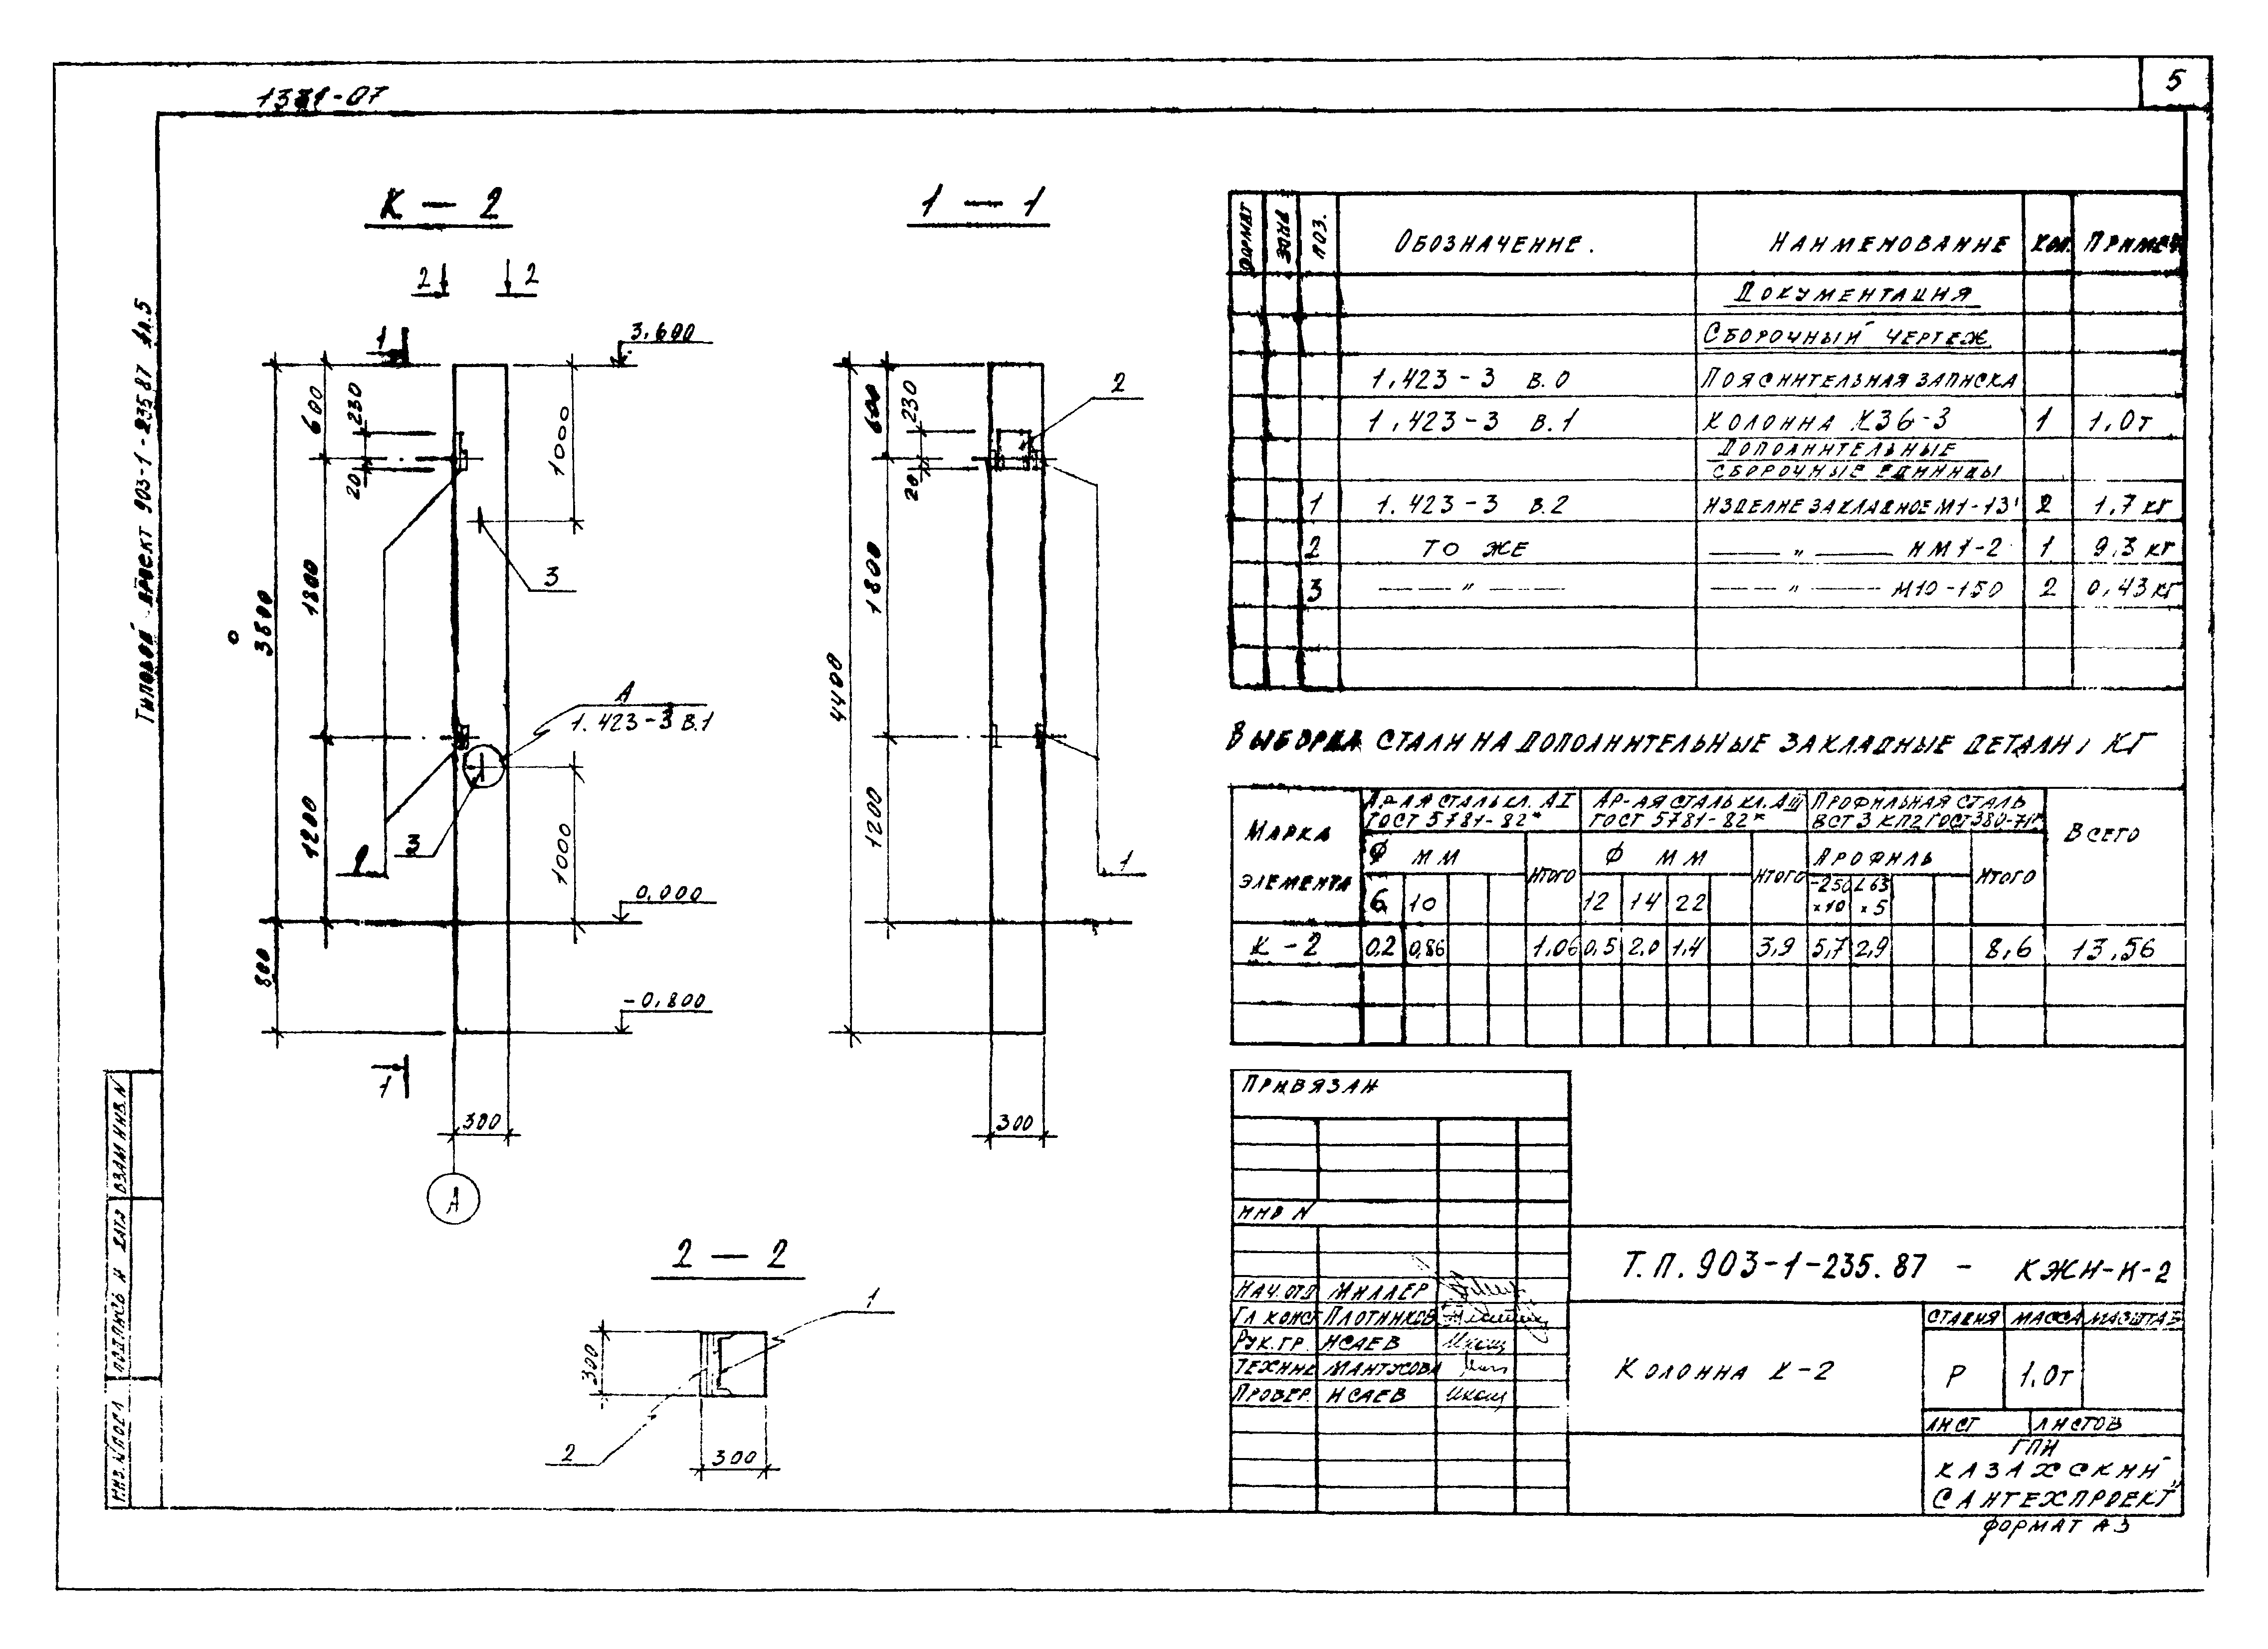 5
1331-07
Типовой проект 903-1-235 87 Ал.5
К — 2
2 2
1
3,600
600
230
20
1000
3
1800
3800
А
1.423-3 В.1
1200
3
1000
0,000
800
-0,800
1
300
А
1 — 1
600
230
20
2
1800
4400
1200
1
300
2 — 2
1
300
2
300
Формат Зона Поз. Обозначение. Наименование Кол. Примеч
Документация
Сборочный чертеж
1.423-3 В.0 Пояснительная записка
1.423-3 В.1 Колонна К36-3 1 1,0т
Дополнительные
сборочные единицы
1 1.423-3 В.2 Изделие закладное М1-13 2 1,7 кг
2 То же — „ — НМ1-2 1 9,3 кг
3 — „ — — „ — М10-150 2 0,43 кг
Выборка стали на дополнительные закладные детали, кг
Марка элемента
Ар-ая сталь кл. АI ГОСТ 5781-82*
Ар-ая сталь кл. АIII ГОСТ 5781-82*
Профильная сталь ВСт 3 кп2 ГОСТ 380-71*
Всего
Ф мм Итого Ф мм Итого Профиль Итого
6 10 12 14 22 -250×10 L63×5
К-2 0,2 0,86 1,06 0,5 2,0 1,4 3,9 5,7 2,9 8,6 13,56
Привязан
Инв N
Т.П. 903-1-235.87 - КЖИ-К-2
Нач.отд Миллер
Гл конст Плотников
Рук.гр. Исаев
Техник Мантусова
Провер. Исаев
Колонна К-2
Стадия Масса Масштаб
Р 1,0т
Лист Листов
ГПИ
Казахский
Сантехпроект"
Формат А3
Взам инв. N
Подпись и дата
Инв. N подл